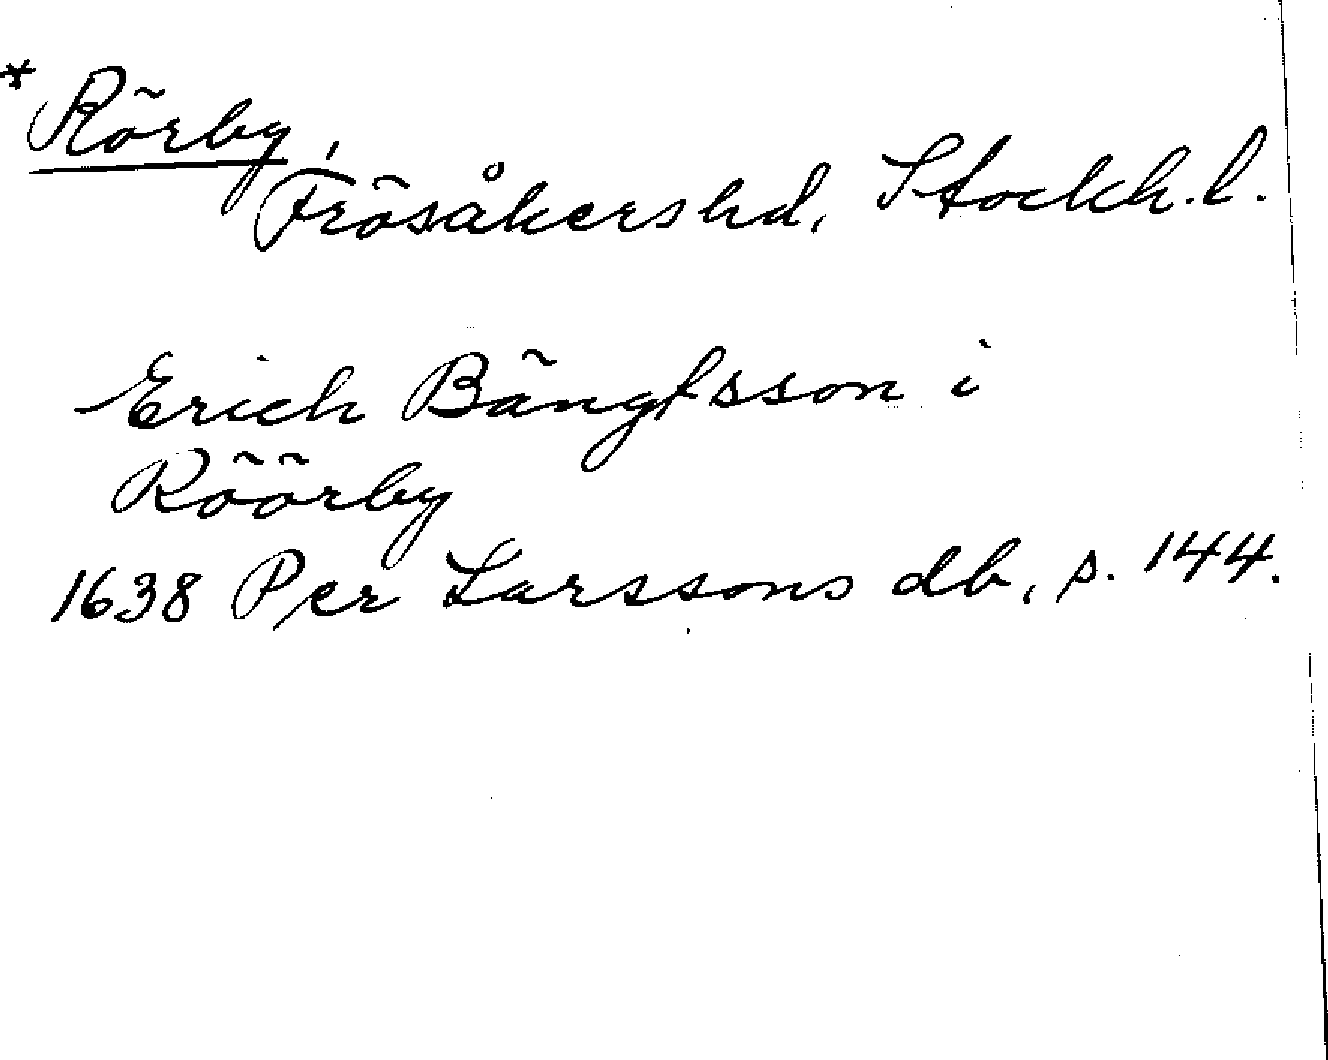 * Rörby,
Frösåkers hd, Stockh. l.
Erich Bängtsson i
Röörby
1638 Per Larssons db, s. 144.